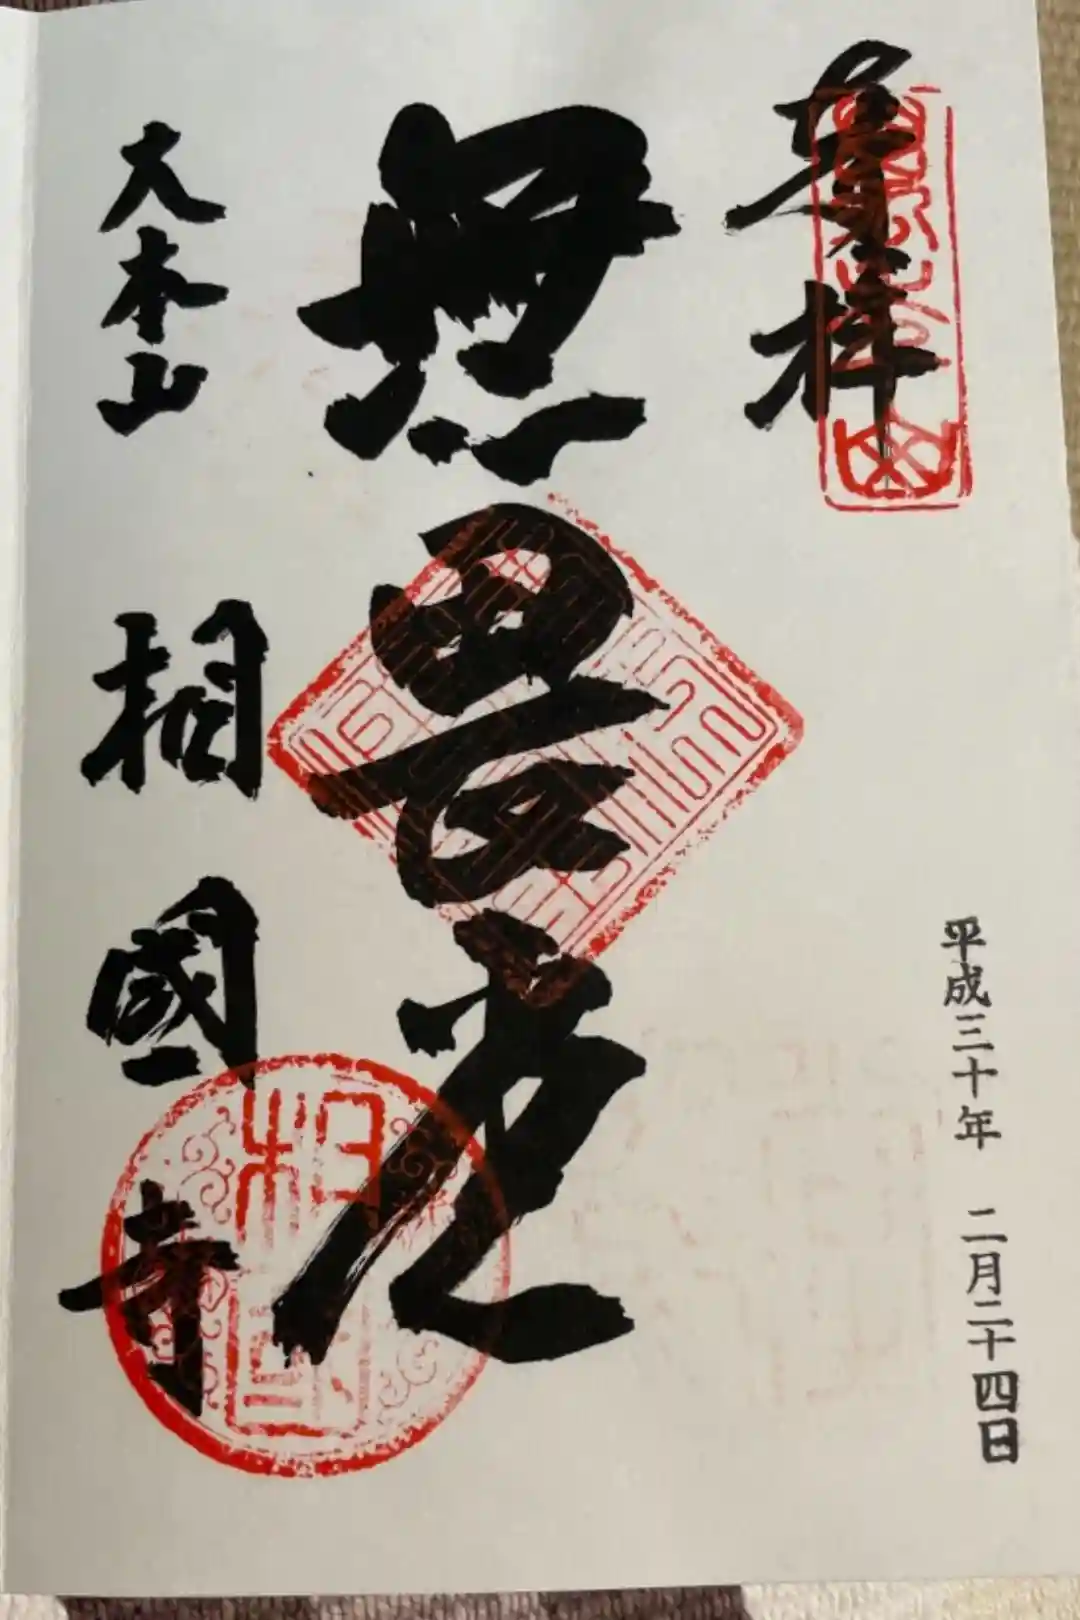 奉拝
平成三十年 二月二十四日
無畏堂
大本山 相國寺
相國